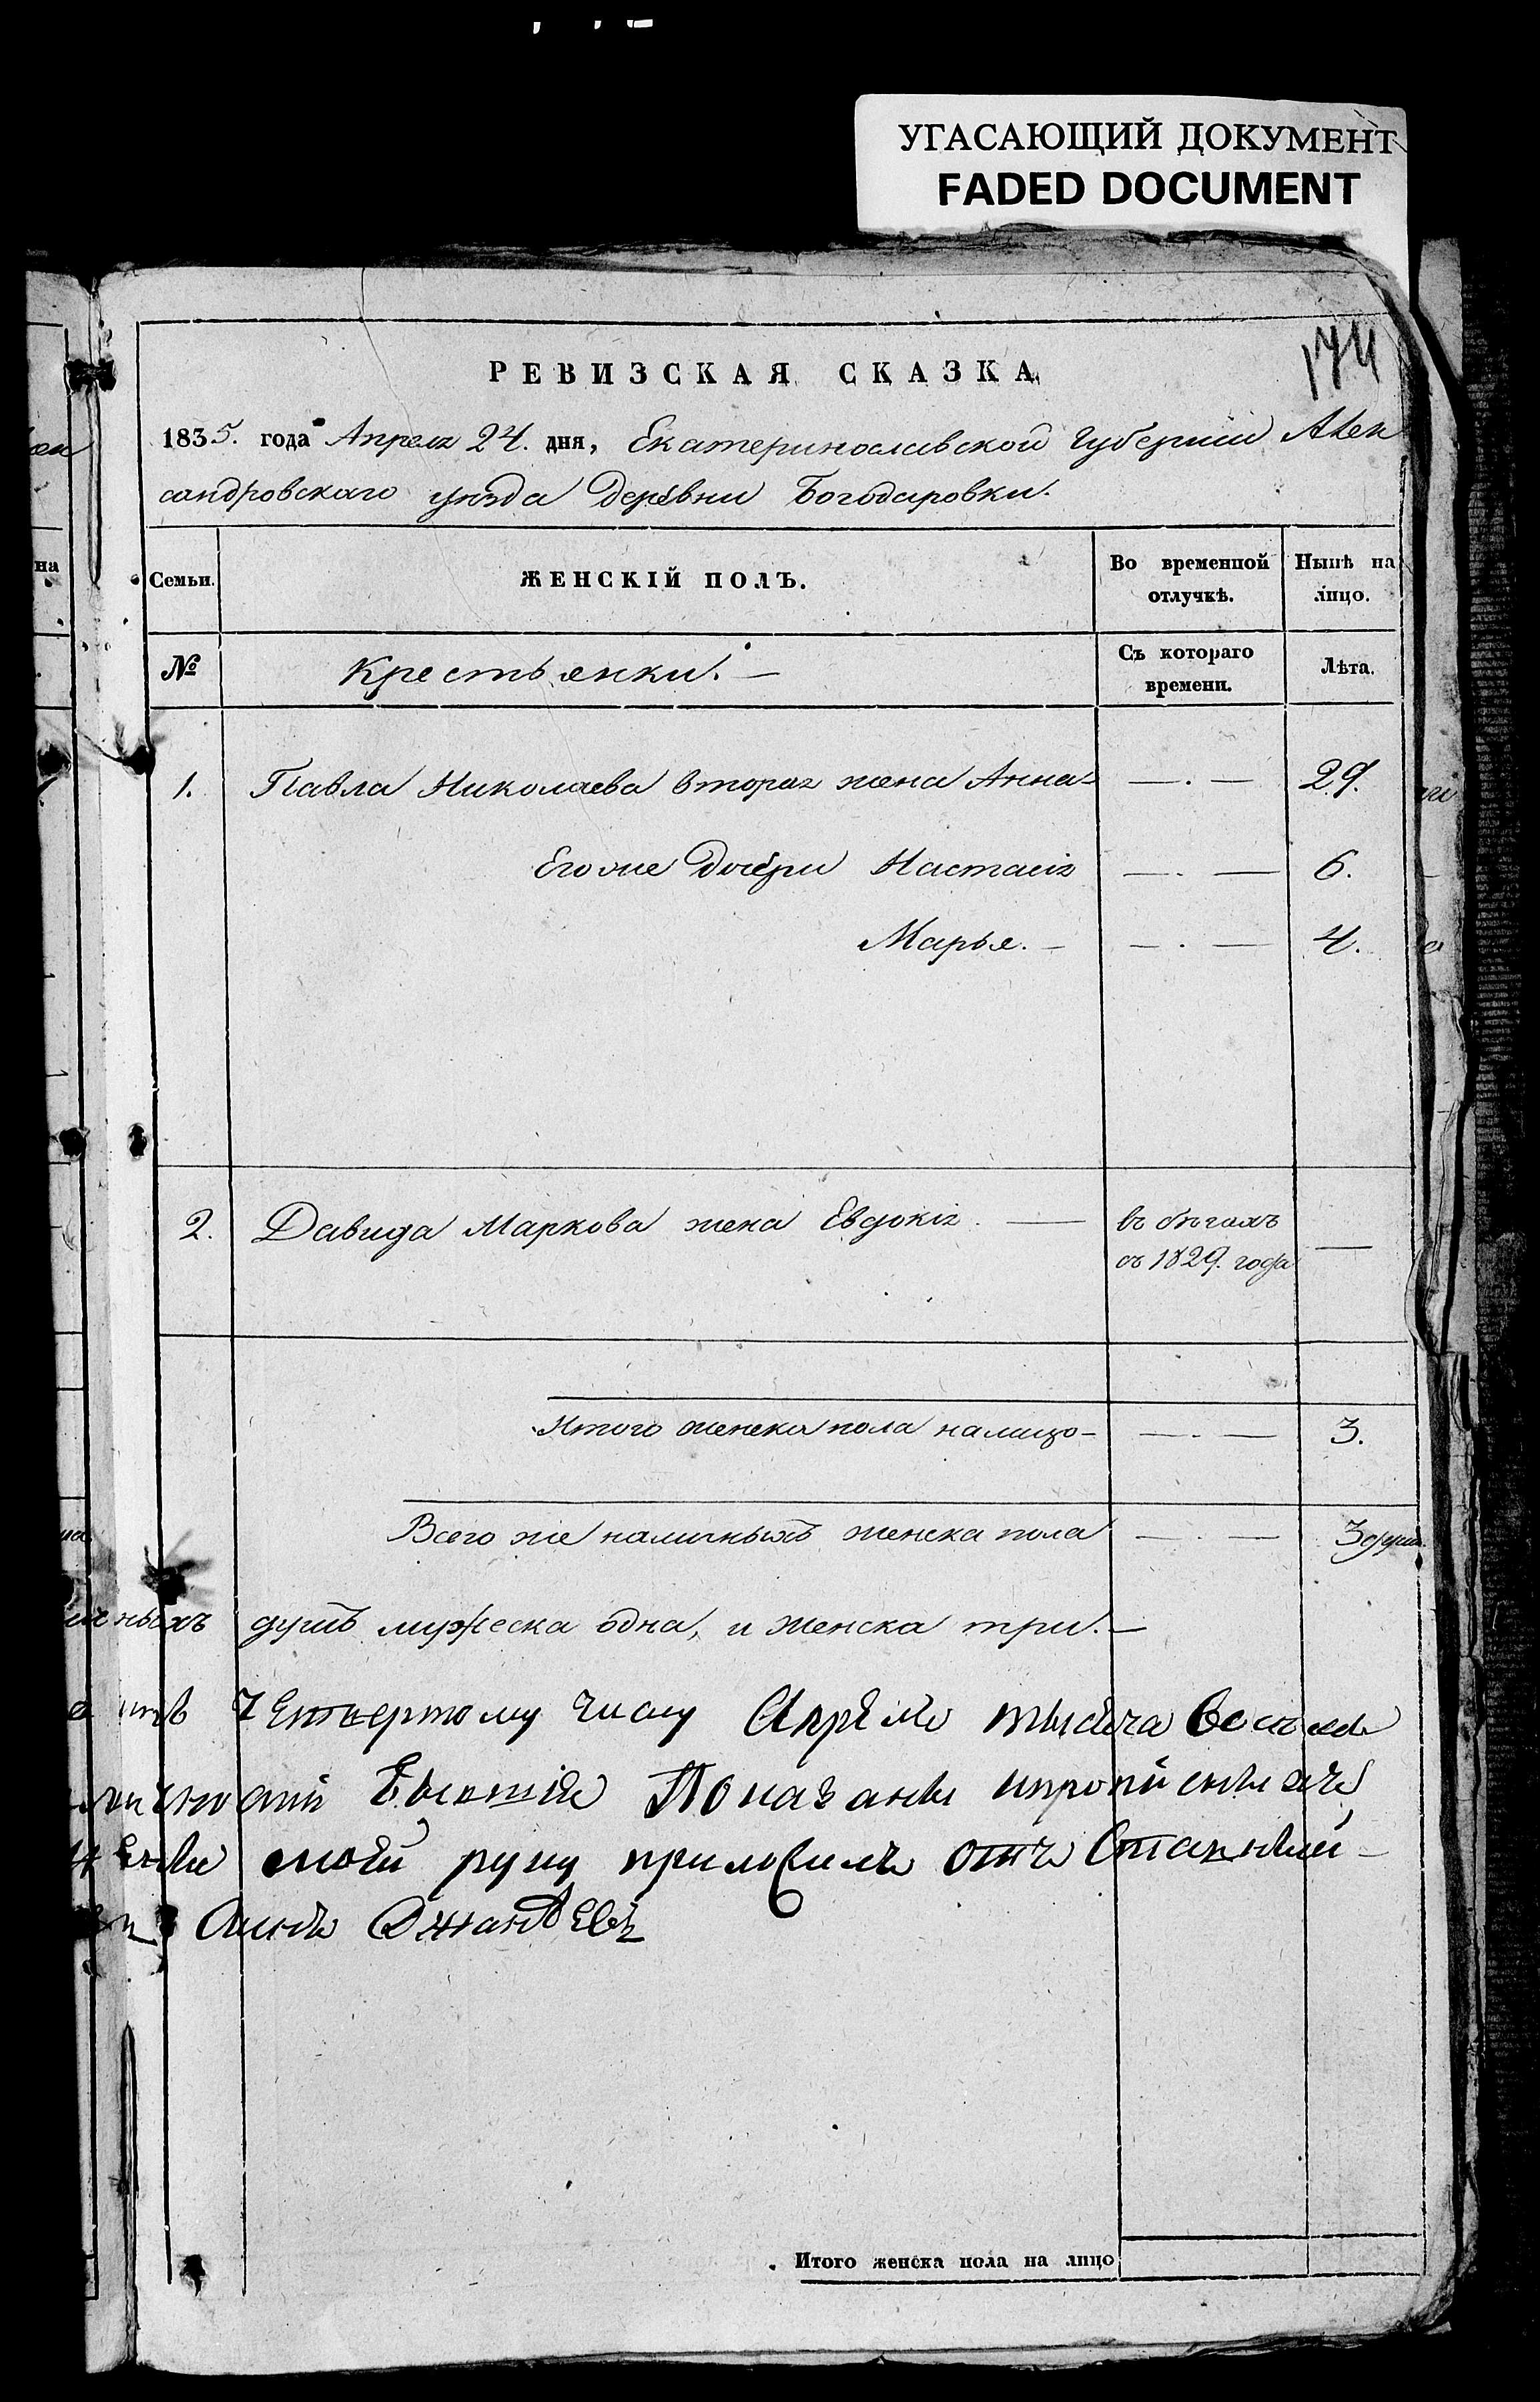 УГАСАЮЩИЙ ДОКУМЕНТ
FADED DOCUMENT
174
РЕВИЗСКАЯ СКАЗКА
1835. года Апреля 24. дня, Екатеринославской Губернии Алек
сандровскаго уѣзда Деревни Богодаровки.
Семьи. ЖЕНСКІЙ ПОЛЪ. Во временной отлучкѣ. Нынѣ на лицо.
№ Крестьянки. Съ котораго времени. Лѣта.
1. Павла Николаева вторая жена Анна — . — 29.
Его же Дочери Настасія — . — 6.
Марья. — — . — 4.
2. Давида Маркова жена Евдокія. — въ бѣгахъ —
съ 1829. года
Итого женска пола налицо — — . — 3.
Всего же наличныхъ женска пола — . — 3 души.
ныхъ душъ мужеска одна, и женска три. —
четвертому числу Апрѣля тысяча восемь
руку приложилъ
Итого женска пола на лицо